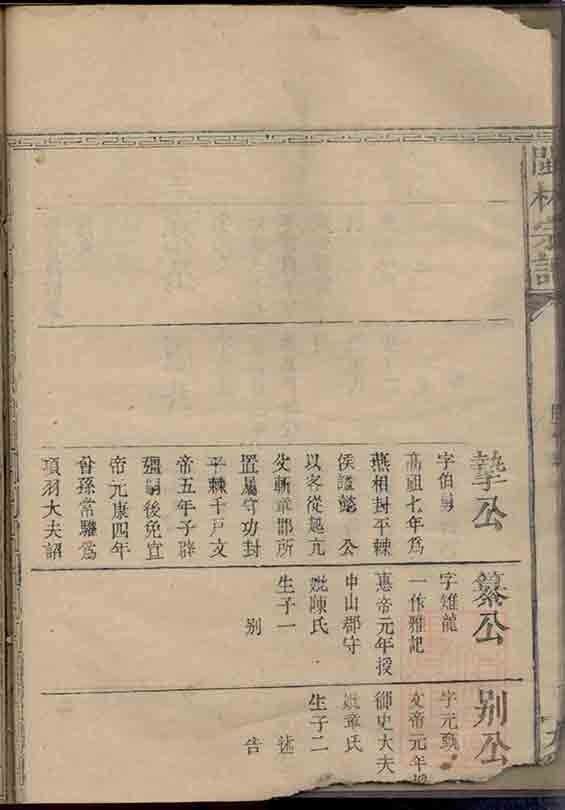 閩林宗譜
摯公
字伯
高祖七年爲
燕相封平棘
侯諡懿 公
以客從起亢
父斬章邯所
置蜀守功封
平棘千戶文
帝五年子辟
疆嗣後免宣
帝元康四年
曾孫常驩爲
項羽大夫詔
纂公
字雉龍
一作雅記
惠帝元年授
中山郡守
妣陳氏
生子一
别
别公
字元
文帝元年授
御史大夫
妣章氏
生子二
告